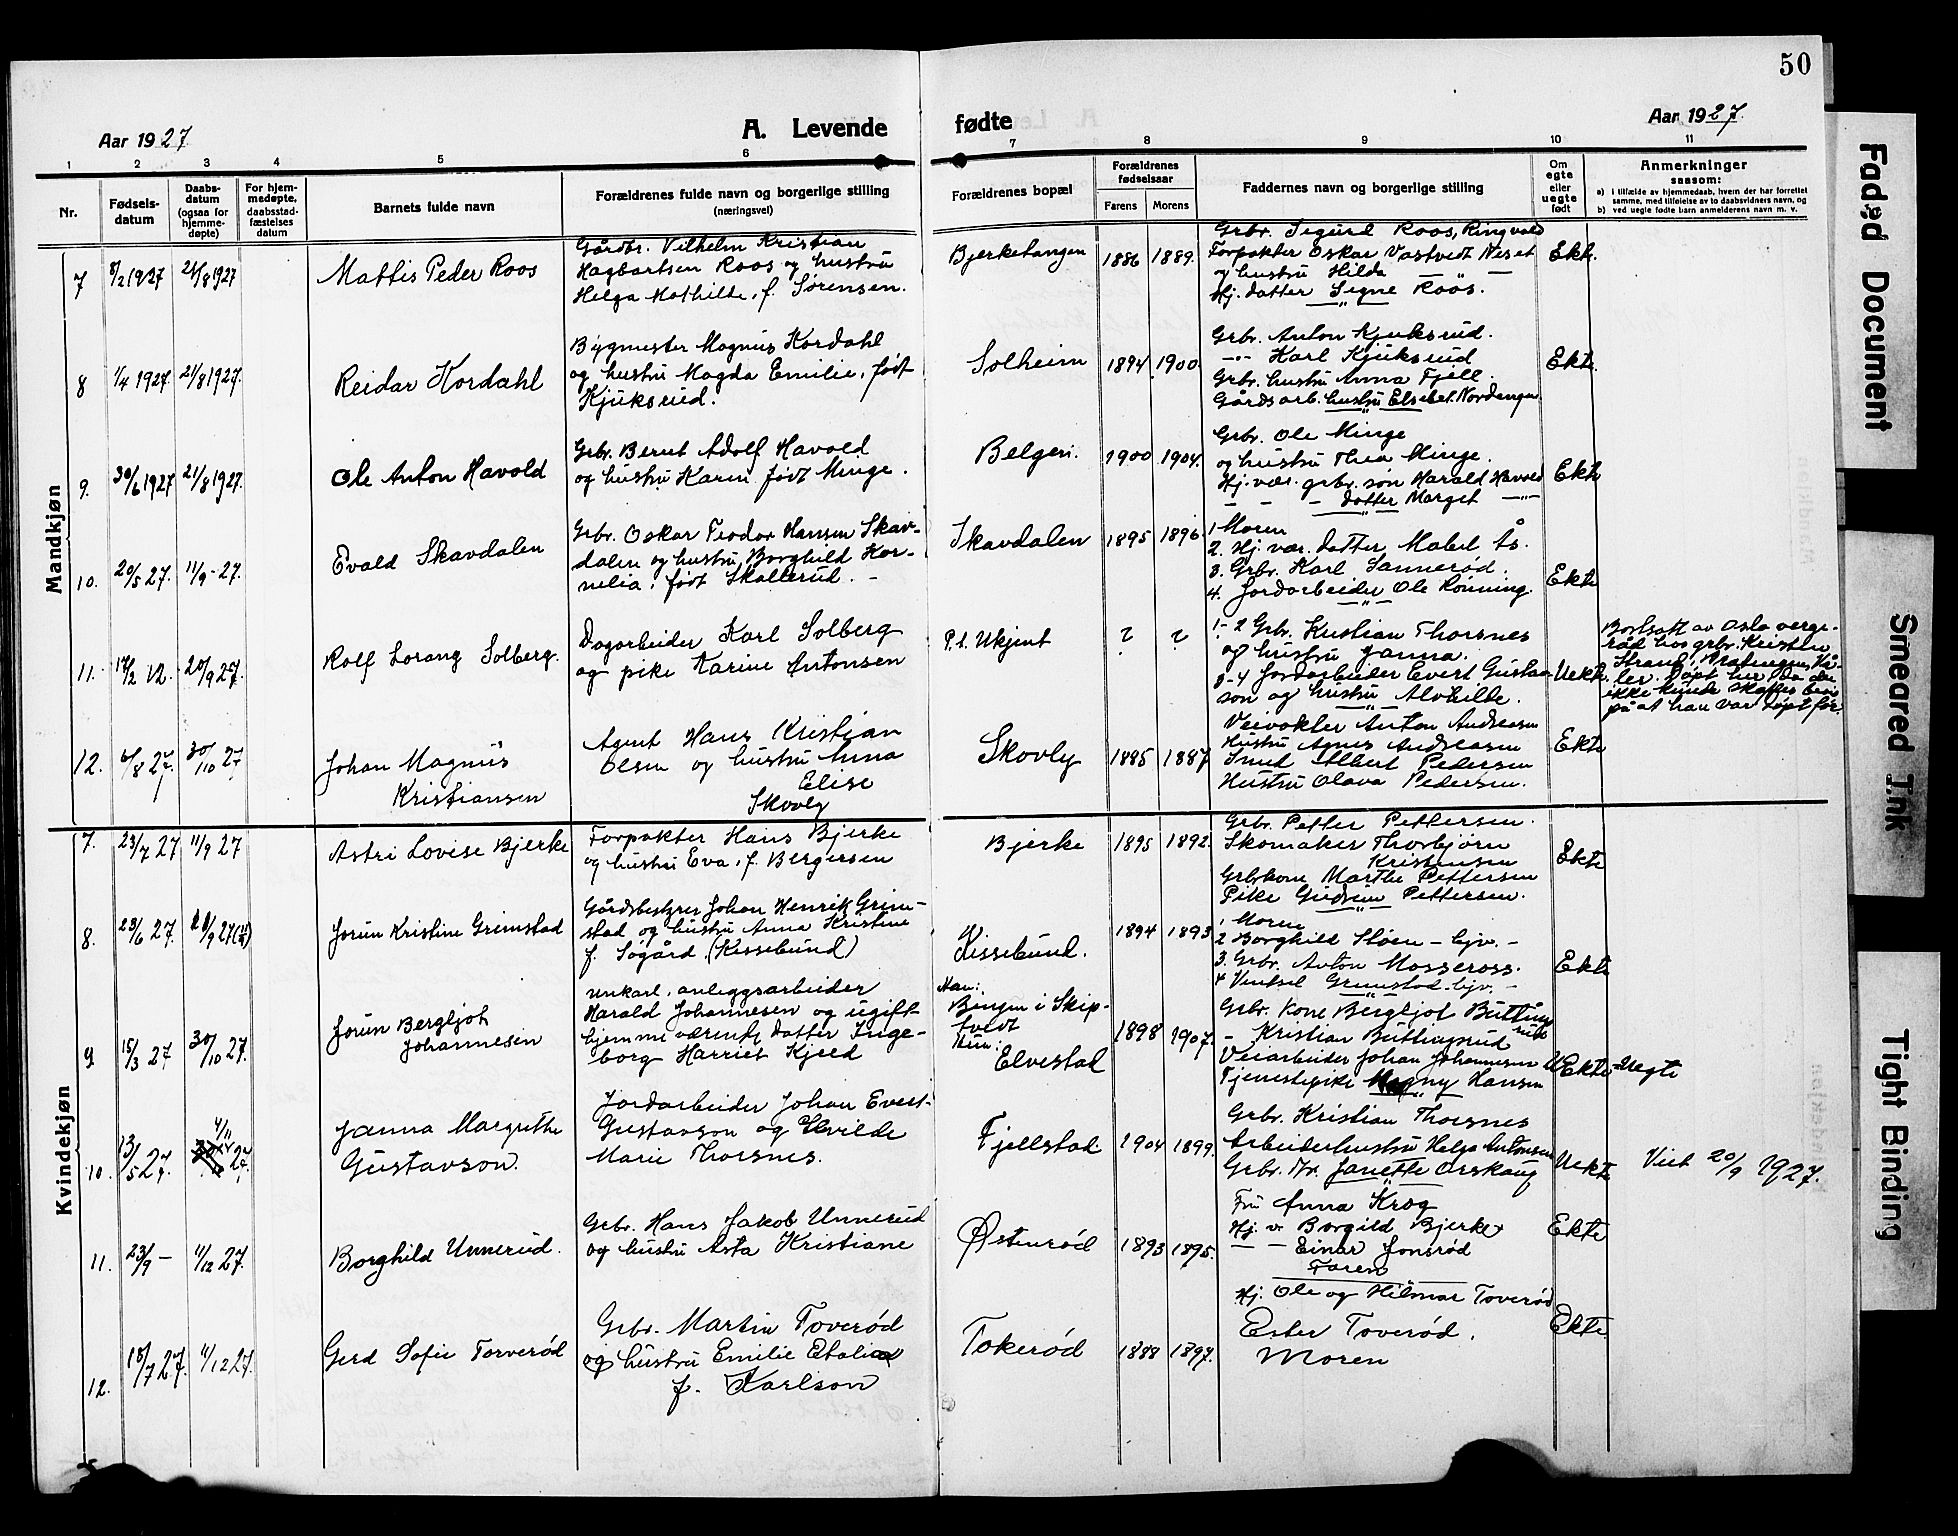 50
Aar 1927
A. Levende
fødte
Aar 1927.
1 2 3 4 5 6 7 8 9 10 11
Nr.
Fødsels-
datum
Daabs-
datum
(ogsaa for
hjemme-
døpte)
For hjem-
medøpte,
daabsstad-
fæstelses
datum
Barnets fulde navn
Forældrenes fulde navn og borgerlige stilling
(næringsvei)
Forældrenes bopæl
Forældrenes
fødselsaar
Farens Morens
Faddernes navn og borgerlige stilling
Om
egte
eller
uegte
født
Anmerkninger
saasom:
a) i tilfælde av hjemmedaab, hvem der har forrettet
samme, med tilføielse av to daabsvidners navn, og
b) ved uegte fødte barn anmelderens navn m. v.
Mandkjøn
7
8/2 1927
21/8 1927
Mattis Peder Roos
Gårdbr. Vilhelm Kristian
Hagbartsen Roos og hustru
Helga Mathilde, f. Sørensen.
Bjerketangen
1886 1889.
Grbr. Sigurd Roos, Ringvold
Forpakter Oskar Vastvedt Neset
og hustru Hilda — " —
Hj. datter Signe Roos.
Ekte.
8
1/4 1927
21/8 1927.
Reidar Kordahl
Bygmester Magnus Kordahl
og hustru Magda Emilie, født
Kjuksrud.
Solheim
1894 1900.
Grbr. Anton Kjuksrud.
-"- Karl Kjuksrud
Grbr. hustru Anna Fjell.
Gårdsarb. hustru Elsebet Nordengen
Ekte.
9.
30/6 1927
21/8 1927.
Ole Anton Havold
Grbr. Bernt Adolf Havold
og hustru Karen født Minge.
Belgen.
1900 1904.
Grbr. Ole Minge
og hustru Thea Minge.
Hj. vær. grbr. søn Harald Havold
- - - datter Marget —"—
Ekte
10.
20/5 27.
11/9 - 27.
Evald Skavdalen
Grbr. Oskar Teodor Hansen Skav-
dalen og hustru Borghild Kor-
nelia, født Skallerud. -
Skavdalen
1895 1896.
1 Moren
2. Hj. vær. datter Mabel Ås.
3. Grbr. Karl Sannerød.
4. Jordarbeider Ole Rønning.
Ekte
11.
17/2 12.
20/9 27.
Rolf Lorang Solberg.
Dagarbeider Karl Solberg
og pike Karine Antonsen
P.t. Ukjent
? ?
1-2 Grbr. Kristian Thorsnes
og hustru Janna.
3-4 Jordarbeider Evert Gustav-
son og hustru Alvhilde.
Uekte.
Bortsatt av Oslo verge-
råd hos grbr. Kristen
Strand, Vå-
ler. Døpt her da det
ikke kunde skaffes bevis
på at han var døpt før.
12.
6/8 27.
30/10 27
Johan Magnus
Kristiansen
Agent Hans Kristian
Olsen og hustru Anna
Elise
Skovly
Skovly
1885 1887
Veivokter Anton Andreasen
Hustru Agnes Andreasen
Smed Albert Pedersen
Hustru Olava Pedersen.
Ekte
Kvindekjøn
7.
23/7 27
11/9 27
Astri Lovise Bjerke
Forpakter Hans Bjerke
og hustru Eva, f. Bergersen
Bjerke
1895 1892.
Grbr. Petter Pettersen.
Skomaker Thorbjørn
Kristensen
Grbrkone Marthe Pettersen
Pike Gudrun Pettersen.
Ekte
8.
23/6 27.
Jorun Kristine Grimstad
Gårdsbestyrer Johan Henrik Grim-
stad og hustru Anna Kristine
f. Søgård. (Kissebund)
Kissebund.
1894 1893
1 Moren
2 Borghild Støen - hjv. -
3. Grbr. Anton Mosseross.
4 Grimstad. hjv. -
Ekte
9
15/3 27
30/10 27.
Jorun Bergljot
Johannesen
Unkarl, anleggsarbeider
Harald Johannesen og ugift
hjemmeværende datter Inge-
borg Harriet Kjeld
Han:
Bingen i Skip-
tvedt
Hun:
Elvestad
1898 1907.
Grbr. Kone Bergljot
- Kristian
Veiarbeider Johan Johannesen
Tjenestepike Magny Hansen
UEkte = Uegte
10.
13/5 27.
4/11 27.
Janna Margrethe
Gustavson.
Jordarbeider Johan Evert
Gustavson og Elvilde
Marie Thorsnes.
Fjellstad.
1904 1899.
Grbr. Kristian Thorsnes
Arbeiderhustru Helga Antonsen
Grbr. fr. Janette Orskaug
Uekte
Viet 20/9 1927.
11.
23/9 —
11/12 27.
Borghild Unnerud.
Grbr. Hans Jakob Unnerud
og hustru Asta Kristiane
Østenrød
1893 1895.
Fru Anna Krog
Hj. v. Borgild Bjerke
— - Einar Jonsrød
Faren
Ekte
12.
18/7 27.
11/12 27.
Gerd Sofie Torverød
Grbr. Martin Toverød
og hustru Emilie Etalia
f. Karlson
Tokerød
1888 1897.
Hj. Ole og Hilmar Toverød
Ester Toverød.
Moren
Ekte
Faded Document
Smeared Ink
Tight Binding